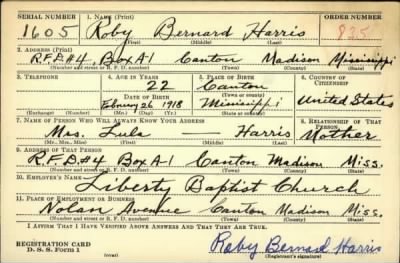 SERIAL NUMBER 1. NAME (Print) ORDER NUMBER
1605 Roby Bernard Harris 835
(First) (Middle) (Last)
2. ADDRESS (Print)
R.F.D.#4, Box A-1 Canton Madison Mississippi
(Number and street or R. F. D. number) (Town) (County) (State)
3. TELEPHONE 4. AGE IN YEARS 5. PLACE OF BIRTH 6. COUNTRY OF CITIZENSHIP
22 Canton
DATE OF BIRTH (Town or county)
February 26 1918 Mississippi United States
(Exchange) (Number) (Mo.) (Day) (Yr.) (State or country)
7. NAME OF PERSON WHO WILL ALWAYS KNOW YOUR ADDRESS 8. RELATIONSHIP OF THAT PERSON
Mrs. Lula — Harris Mother
(Mr., Mrs., Miss) (First) (Middle) (Last)
9. ADDRESS OF THAT PERSON
R.F.D.#4 Box A-1 Canton Madison Miss.
(Number and street or R. F. D. number) (Town) (County) (State)
10. EMPLOYER'S NAME
Liberty Baptist Church
11. PLACE OF EMPLOYMENT OR BUSINESS
Nolan Avenue Canton Madison Miss.
(Number and street or R. F. D. number) (Town) (County) (State)
I AFFIRM THAT I HAVE VERIFIED ABOVE ANSWERS AND THAT THEY ARE TRUE.
REGISTRATION CARD
D. S. S. Form 1 (over) Roby Bernard Harris
(Registrant's signature)